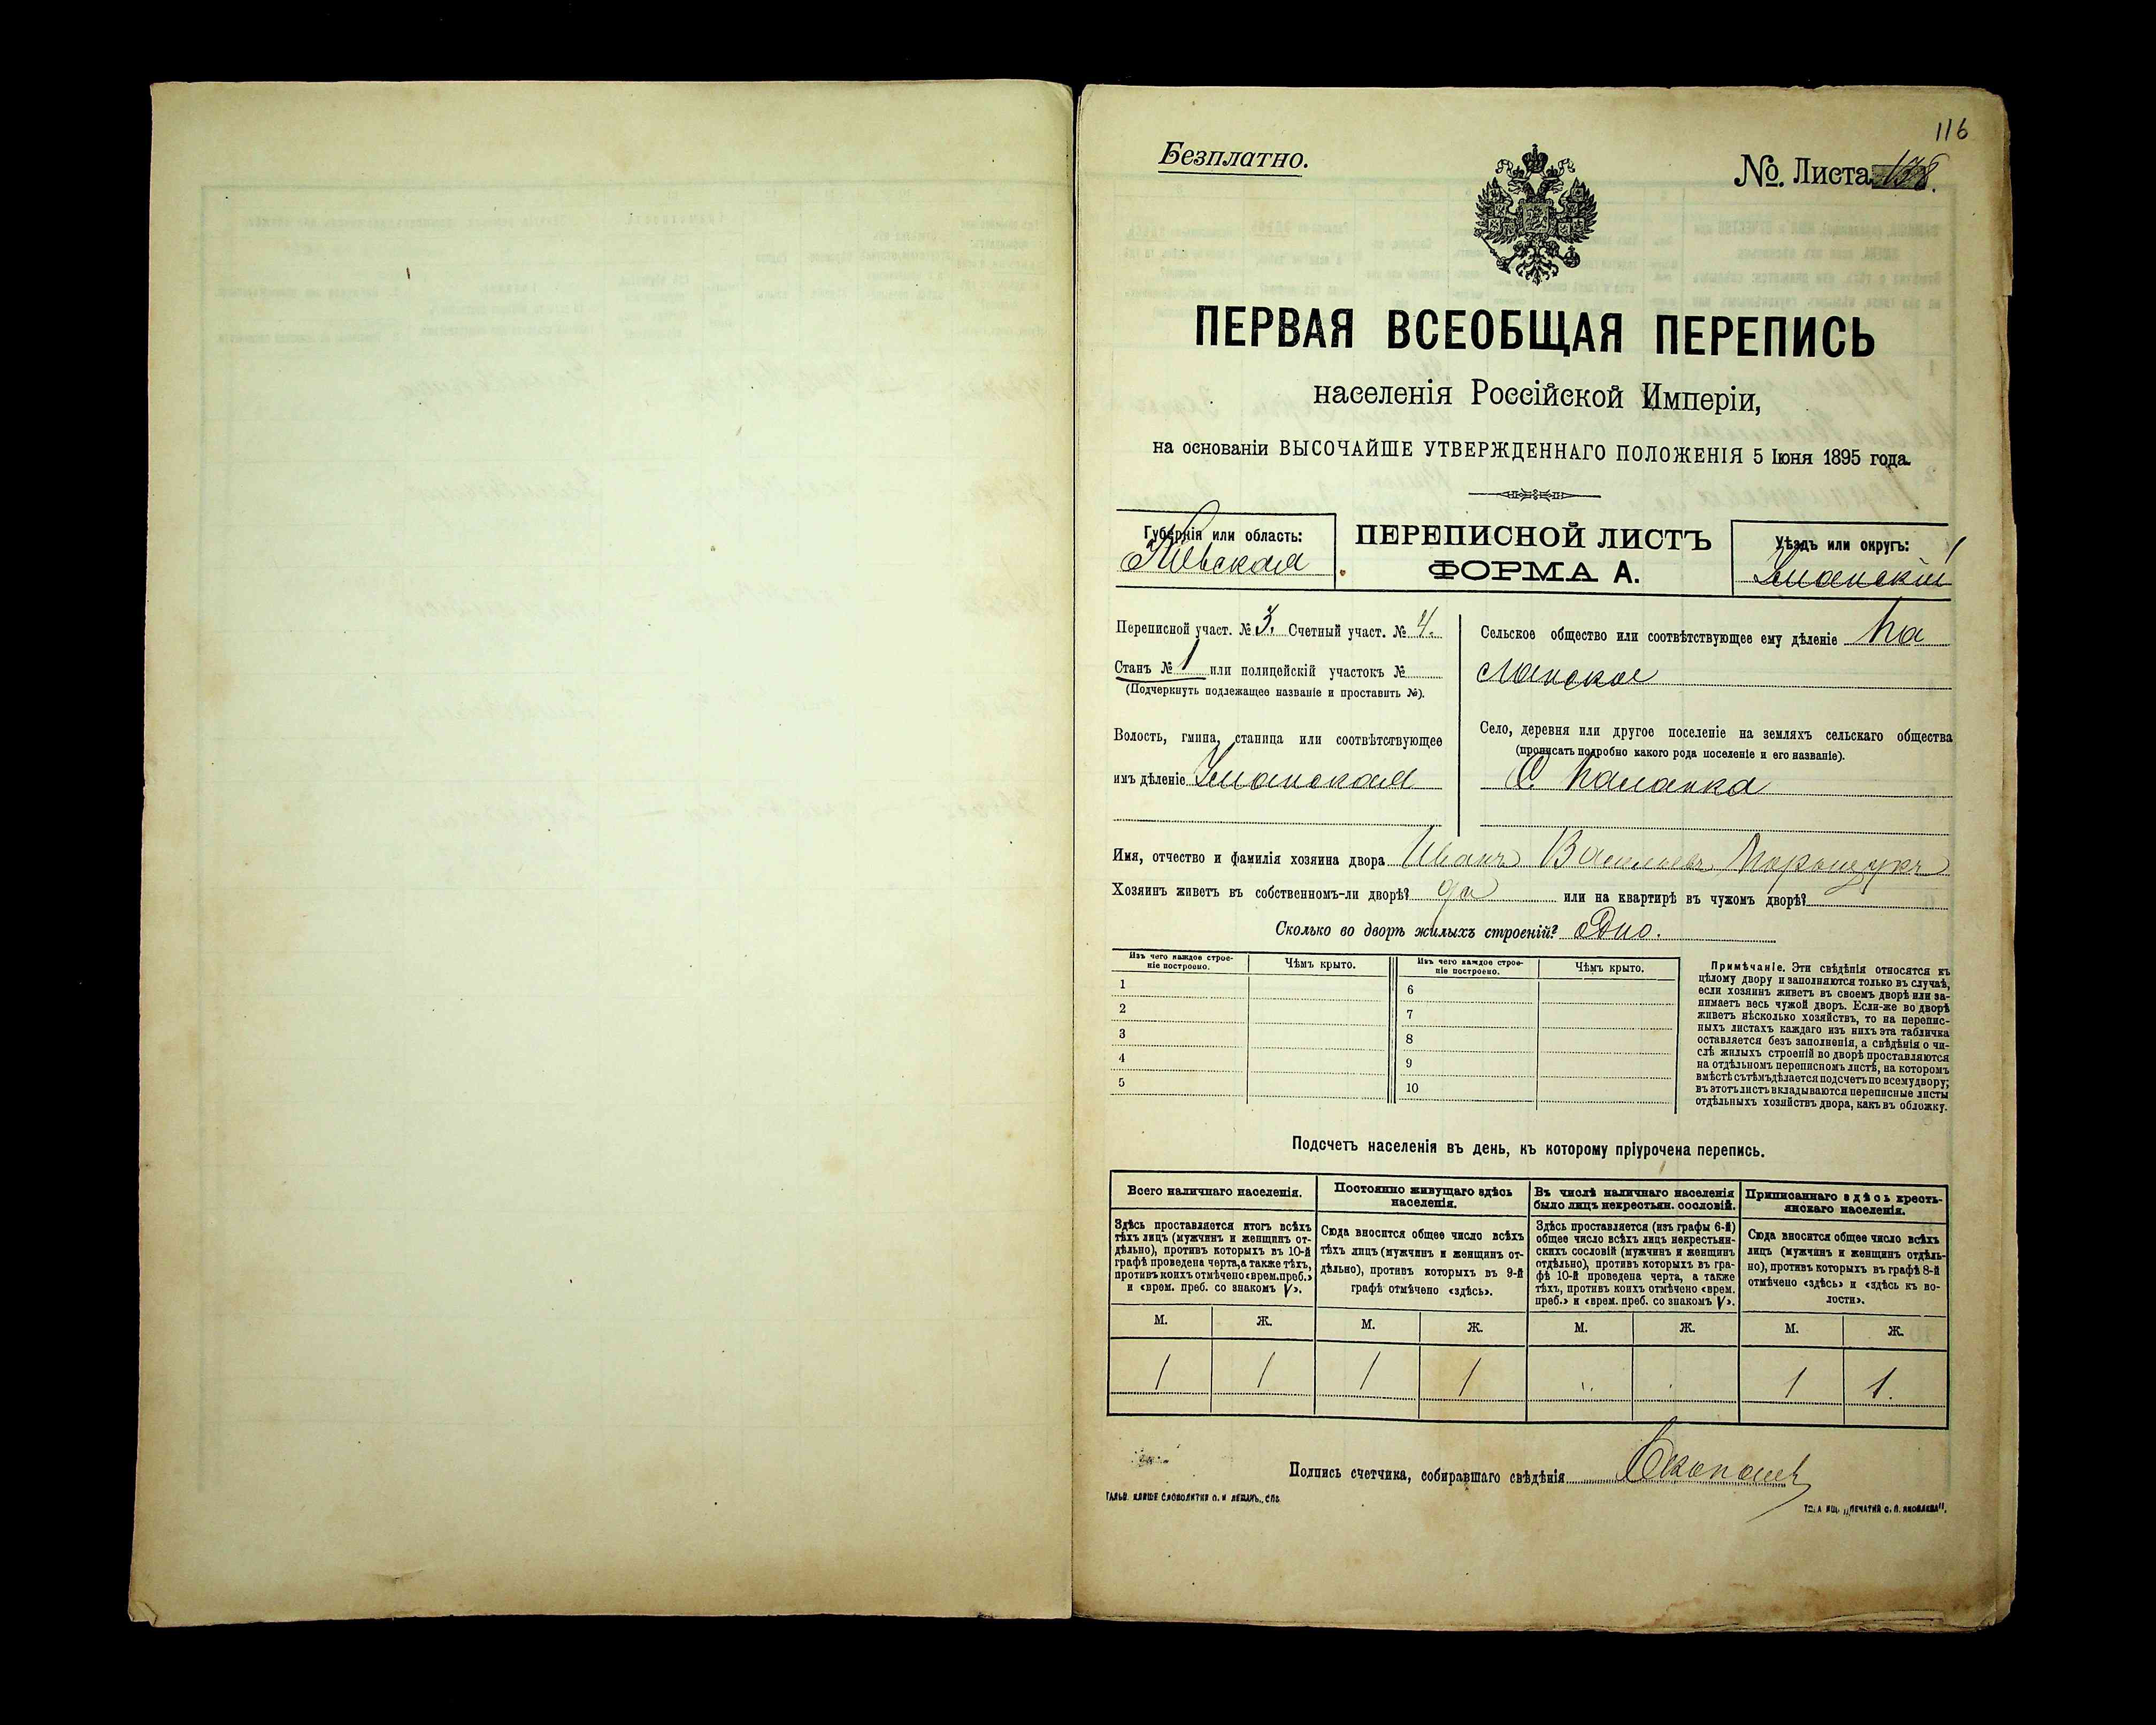 116
Безплатно.
№. Листа 138.
ПЕРВАЯ ВСЕОБЩАЯ ПЕРЕПИСЬ
населенія Россійской Имперіи,
на основаніи ВЫСОЧАЙШЕ УТВЕРЖДЕННАГО ПОЛОЖЕНІЯ 5 Іюня 1895 года.
Губернія или область:
Кіевская
ПЕРЕПИСНОЙ ЛИСТЪ
ФОРМА А.
Уѣздъ или округъ:
Уманскій
Переписной участ. № 3. Счетный участ. № 4.
Станъ № 1 или полицейскій участокъ №
(Подчеркнуть подлежащее названіе и проставить №).
Волость, гмина, станица или соотвѣтствующее
имъ дѣленіе Уманская
Сельское общество или соотвѣтствующее ему дѣленіе Па
ланское
Село, деревня или другое поселеніе на земляхъ сельскаго общества
(прописать подробно какого рода поселеніе и его названіе).
С. Паланка
Имя, отчество и фамилія хозяина двора Иванъ Васильевъ
Хозяинъ живетъ въ собственномъ-ли дворѣ? да или на квартирѣ въ чужомъ дворѣ?
Сколько во дворѣ жилыхъ строеній? Одно.
Изъ чего каждое строе-
ніе построено.
Чѣмъ крыто.
Изъ чего каждое строе-
ніе построено.
Чѣмъ крыто.
1
2
3
4
5
6
7
8
9
10
Примѣчаніе. Эти свѣдѣнія относятся къ
цѣлому двору и заполняются только въ случаѣ,
если хозяинъ живетъ въ своемъ дворѣ или за-
нимаетъ весь чужой дворъ. Если-же во дворѣ
живетъ нѣсколько хозяйствъ, то на перепис-
ныхъ листахъ каждаго изъ нихъ эта табличка
оставляется безъ заполненія, а свѣдѣнія о чи-
слѣ жилыхъ строеній во дворѣ проставляются
на отдѣльномъ переписномъ листѣ, на которомъ
вмѣстѣ съ тѣмъ дѣлается подсчетъ по всему двору;
въ этотъ листъ вкладываются переписные листы
отдѣльныхъ хозяйствъ двора, какъ въ обложку.
Подсчетъ населенія въ день, къ которому пріурочена перепись.
Всего наличнаго населенія.
Здѣсь проставляется итогъ всѣхъ
тѣхъ лицъ (мужчинъ и женщинъ от-
дѣльно), противъ которыхъ въ 10-й
графѣ проведена черта, а также тѣхъ,
противъ коихъ отмѣчено «врем. преб.»
и «врем. преб. со знакомъ V».
Постоянно живущаго здѣсь
населенія.
Сюда вносится общее число всѣхъ
тѣхъ лицъ (мужчинъ и женщинъ от-
дѣльно), противъ которыхъ въ 9-й
графѣ отмѣчено «здѣсь».
Въ числѣ наличнаго населенія
было лицъ некрестьян. сословій.
Здѣсь проставляется (изъ графы 6-й)
общее число всѣхъ лицъ некрестьян-
скихъ сословій (мужчинъ и женщинъ
отдѣльно), противъ которыхъ въ гра-
фѣ 10-й проведена черта, а также
тѣхъ, противъ коихъ отмѣчено «врем.
преб.» и «врем. преб. со знакомъ V».
Приписаннаго здѣсь кресть-
янскаго населенія.
Сюда вносится общее число всѣхъ
лицъ (мужчинъ и женщинъ отдѣль-
но), противъ которыхъ въ графѣ 8-й
отмѣчено «здѣсь» и «здѣсь къ во-
лости».
М. Ж. М. Ж. М. Ж. М. Ж.
1 1 1 1 1 1.
Подпись счетчика, собиравшаго свѣдѣнія